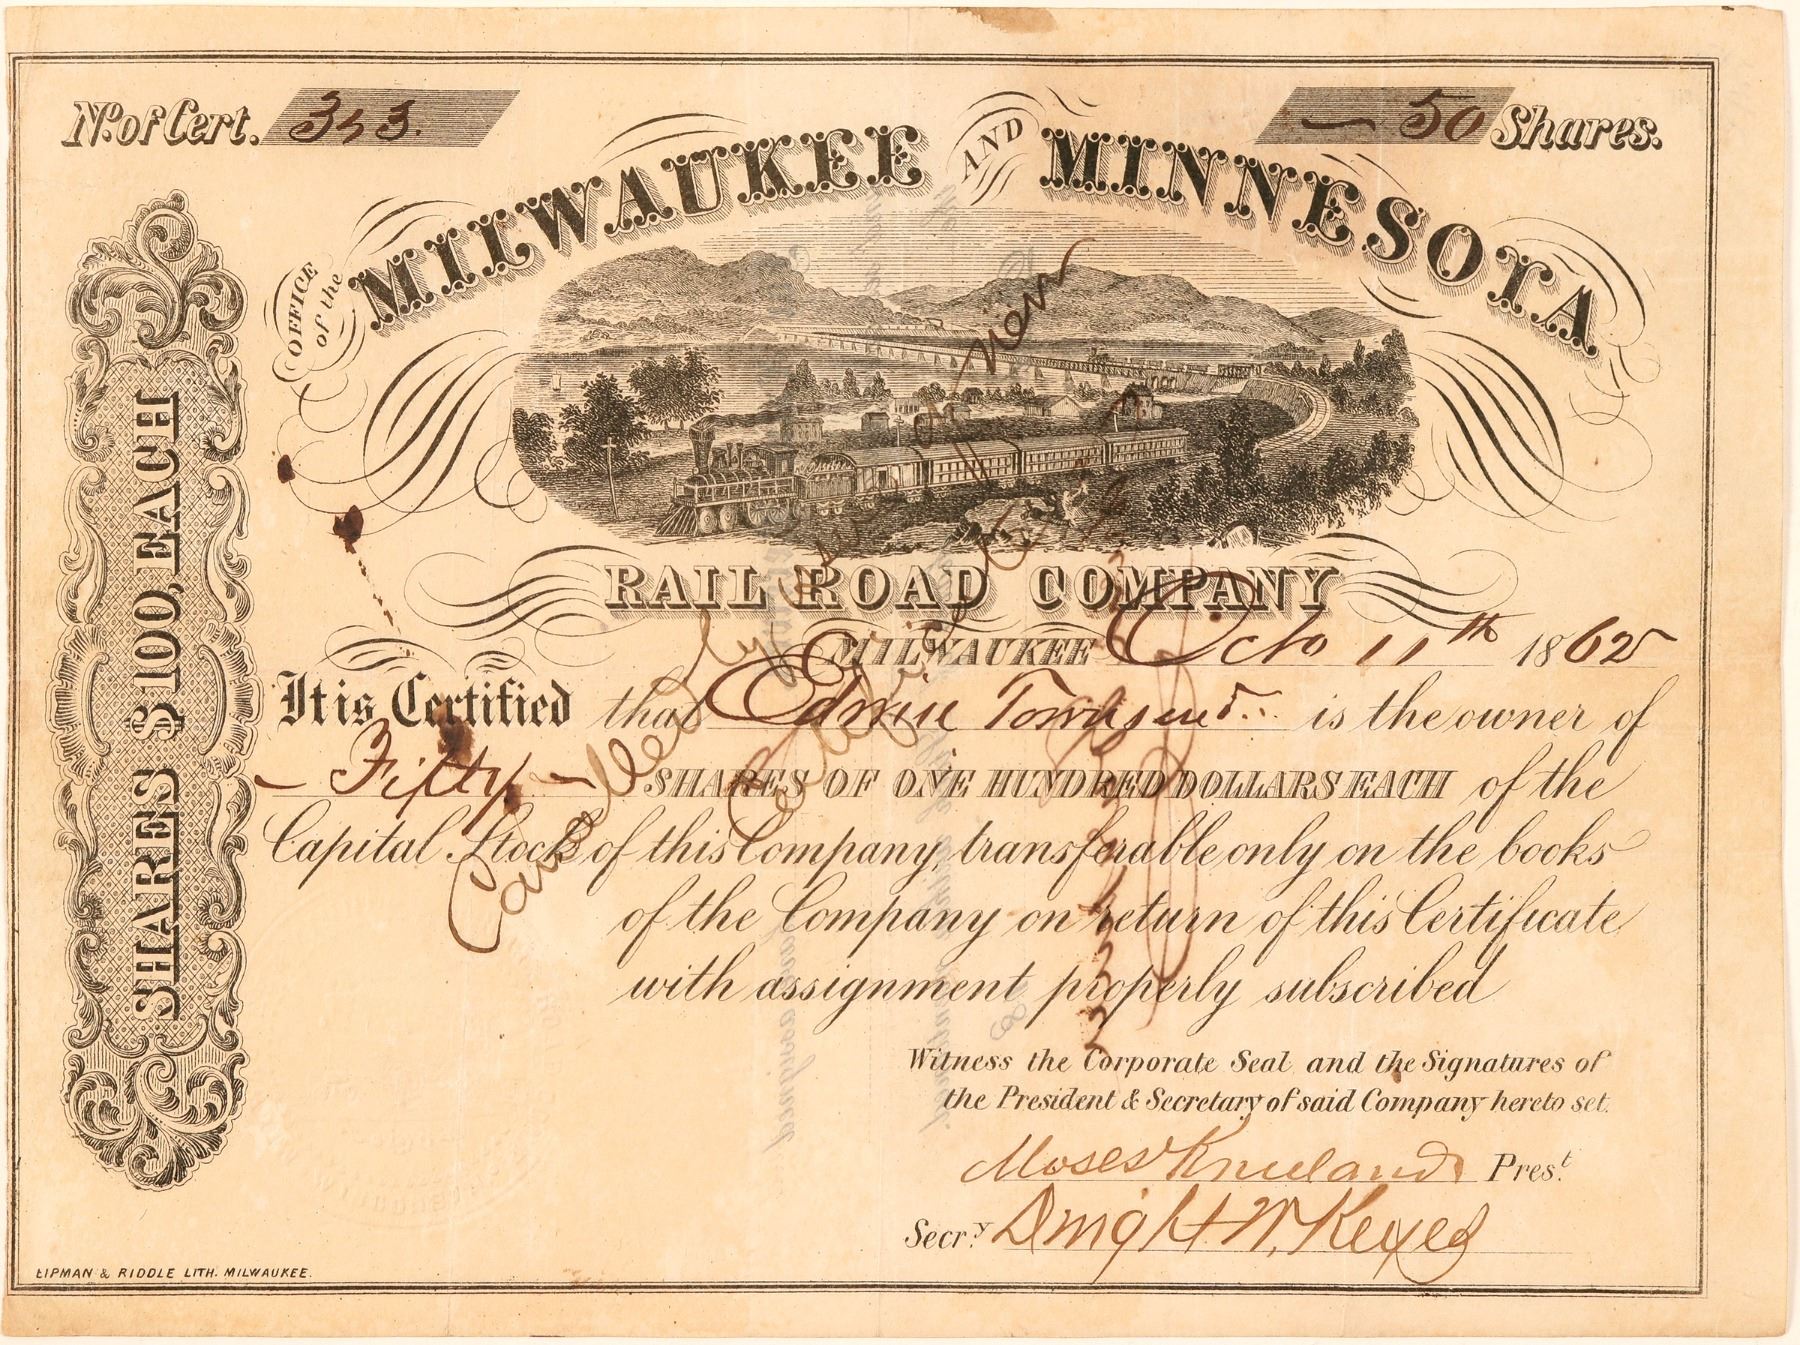 No. of Cert. 353.
50 Shares.
OFFICE of the
MILWAUKEE AND MINNESOTA
RAIL ROAD COMPANY
MILWAUKEE Octo 11th 1862
It is Certified that Edwin Townsend is the owner of
Fifty SHARES OF ONE HUNDRED DOLLARS EACH of the
Capital Stock of this Company, transferable only on the books
of the Company on return of this Certificate
with assignment properly subscribed
Witness the Corporate Seal and the Signatures of
the President & Secretary of said Company hereto set.
Moses Kneeland Prest.
Secry Dwight W. Keyes
SHARES $100, EACH
Cancelled by
new
LIPMAN & RIDDLE LITH. MILWAUKEE.